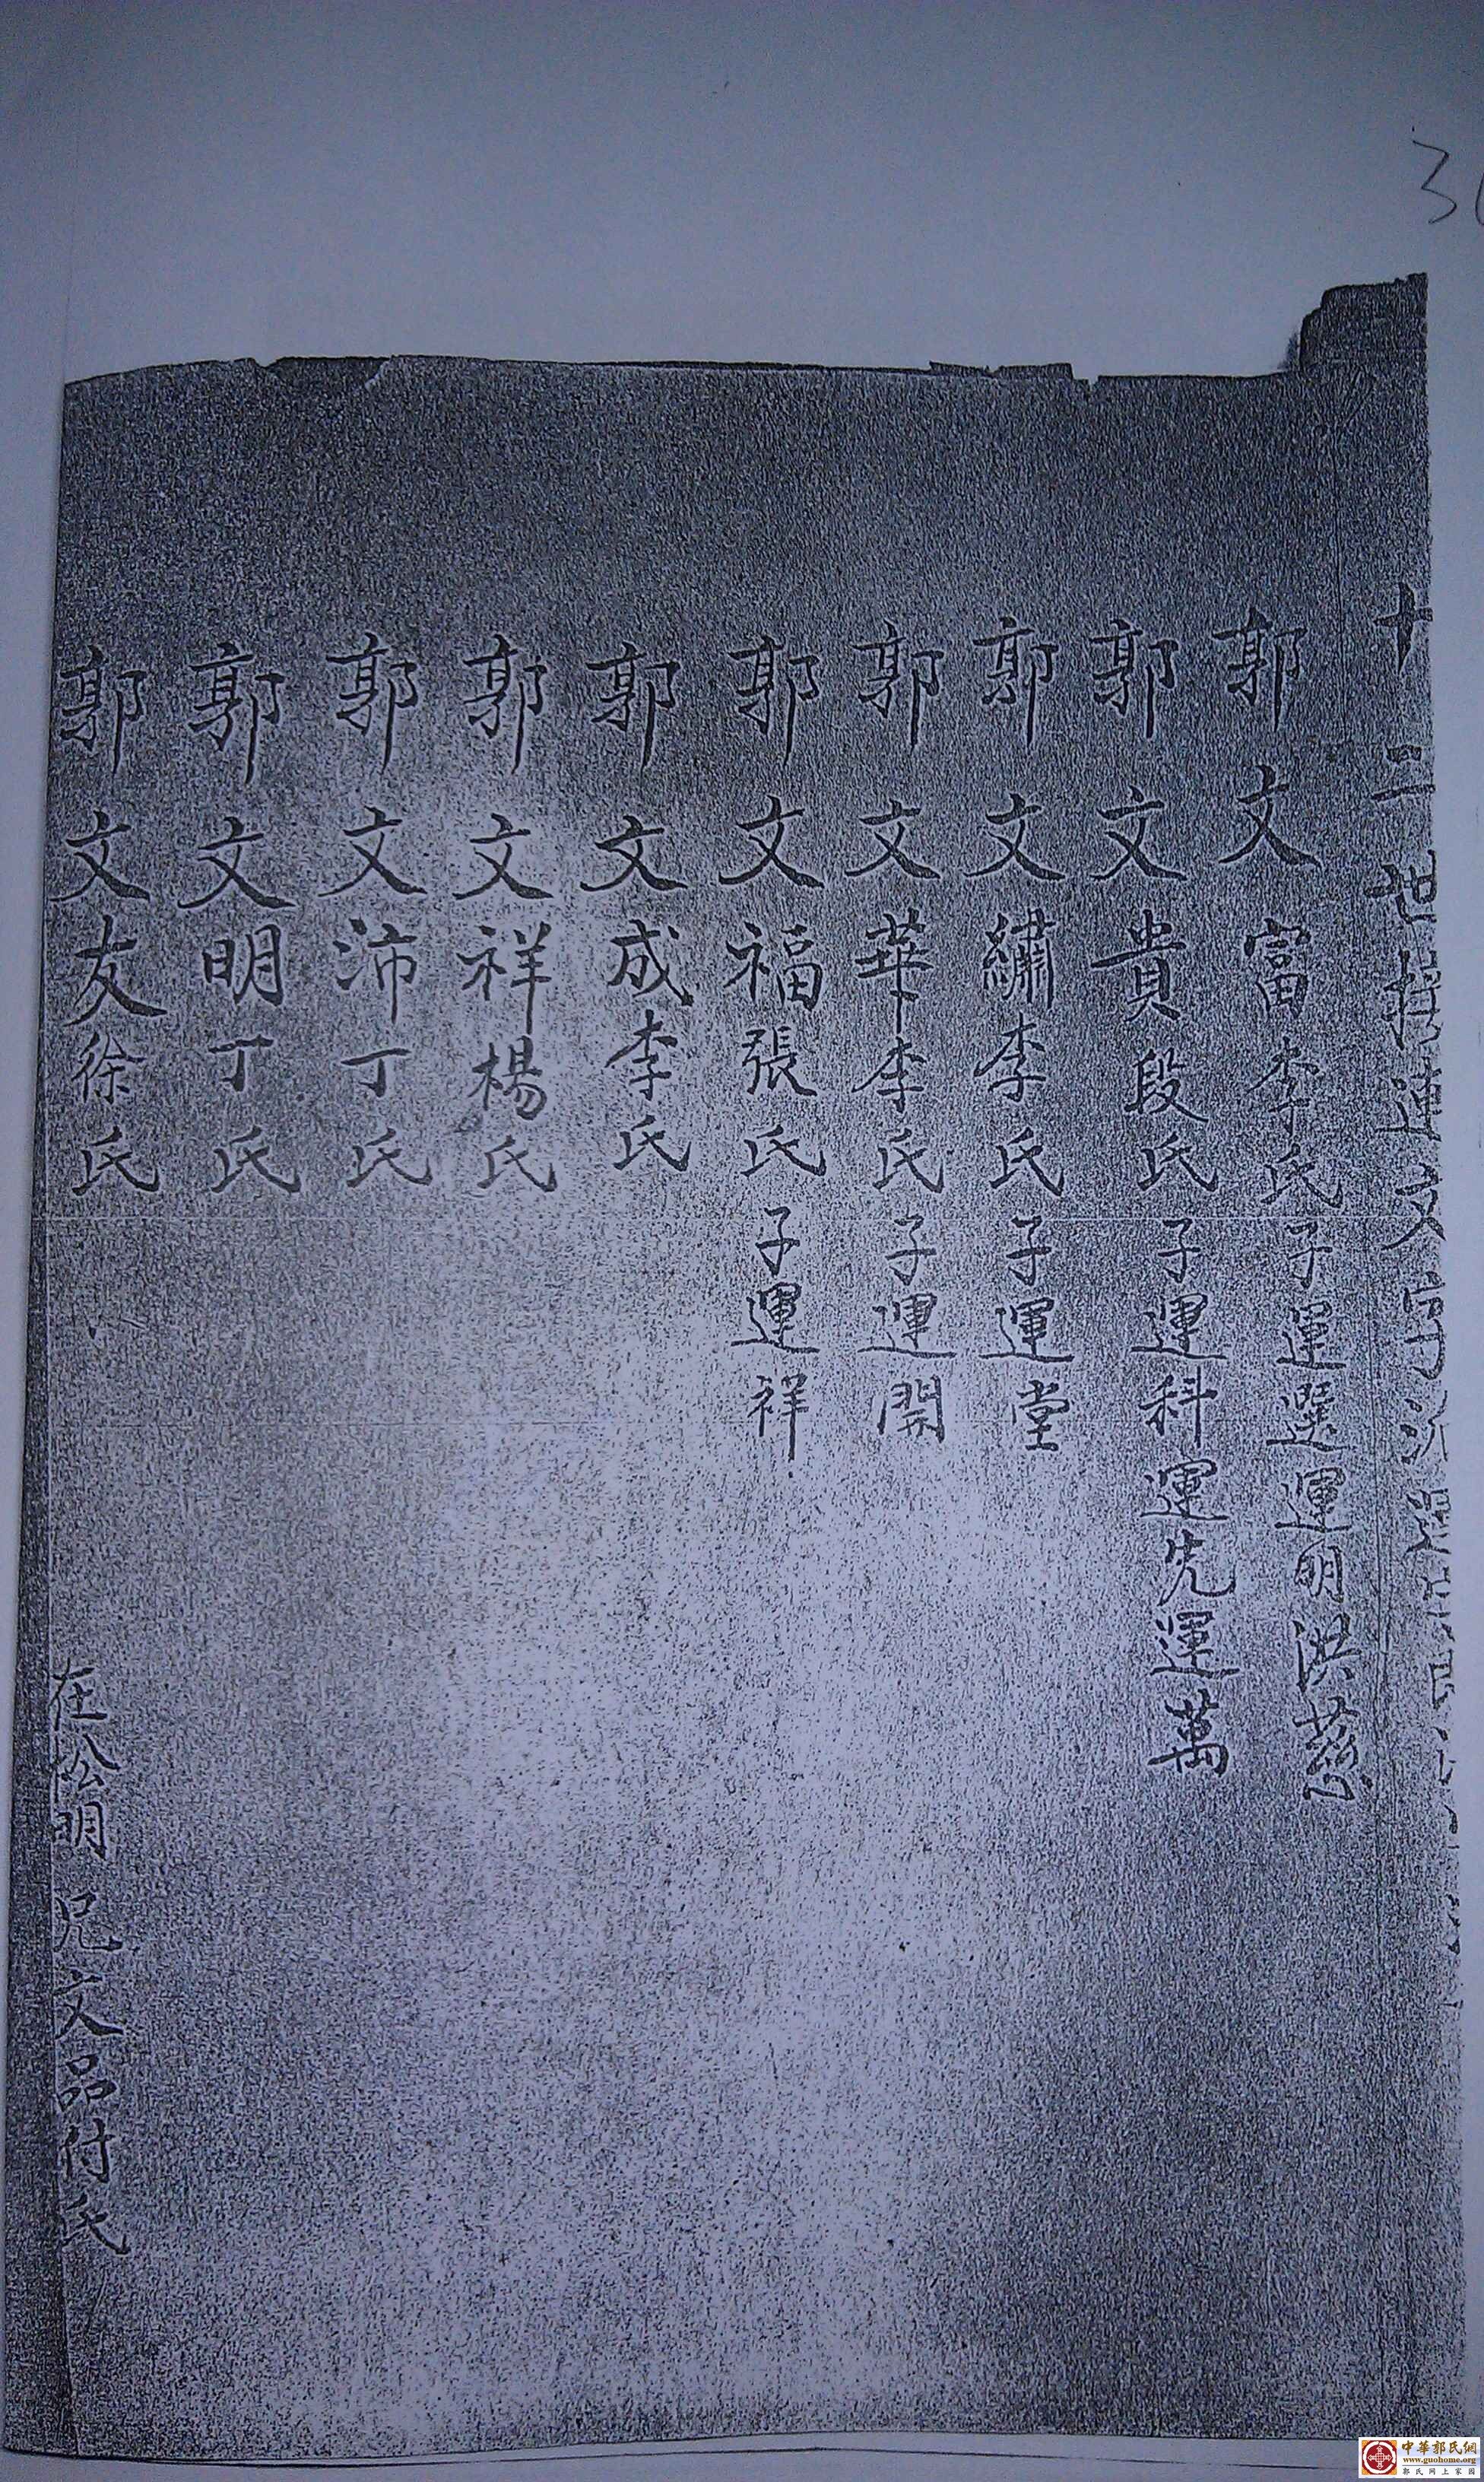 十二世 文字
郭文富李氏子運選運明洪慈
郭文貴段氏子運科運先運萬
郭文繡李氏子運堂
郭文華李氏子運開
郭文福張氏子運祥
郭文成李氏
郭文祥楊氏
郭文沛丁氏
郭文明丁氏
郭文友徐氏 在松明 兄文品付氏
中華郭氏網
www.guohome.org
郭氏网上家园